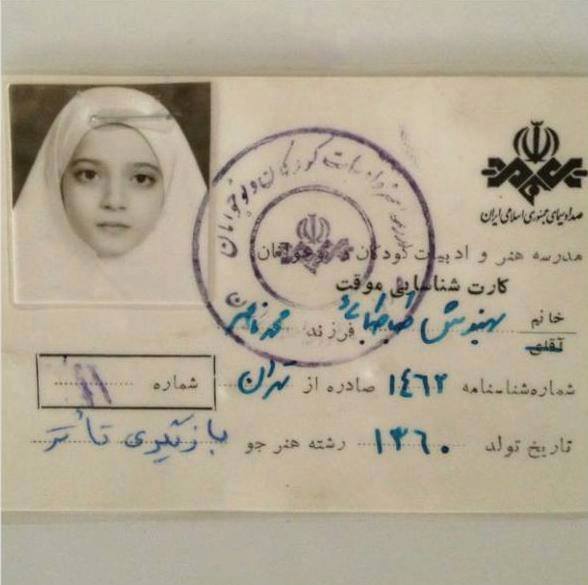 صدا و سیمای جمهوری اسلامی ایران
مدرسه هنر و ادبیات کودکان و نوجوانان
مدرسه هنر و ادبیات کودکان و نوجوانان
کارت شناسایی موقت
خانم بهنوش طباطبائی فرزند محمد
آقای
شماره شناسنامه ۱۴۶۲ صادره از تهران شماره ۱۱
تاریخ تولد ۱۳۶۰ رشته هنر جو بازیگری تأتر